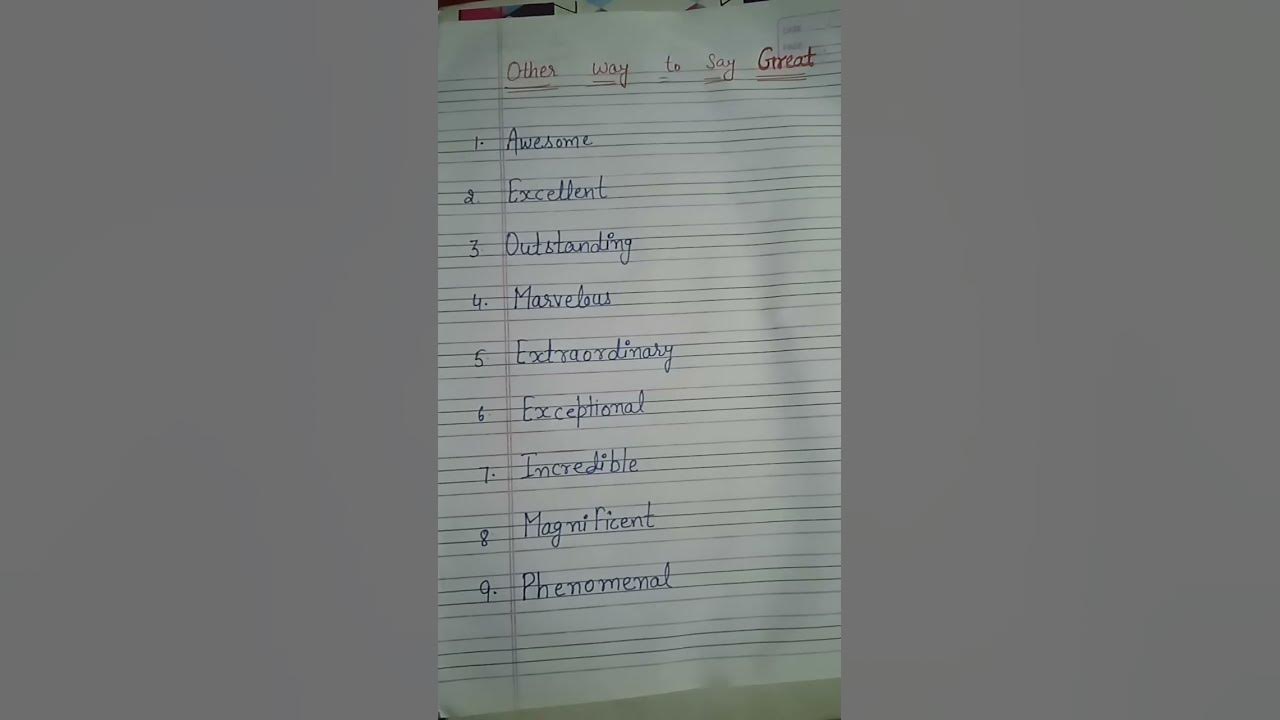 Other way to say Great
1. Awesome
2 Excellent
3 Outstanding
4. Marvelous
5 Extraordinary
6 Exceptional
7. Incredible
8 Magnificent
9. Phenomenal